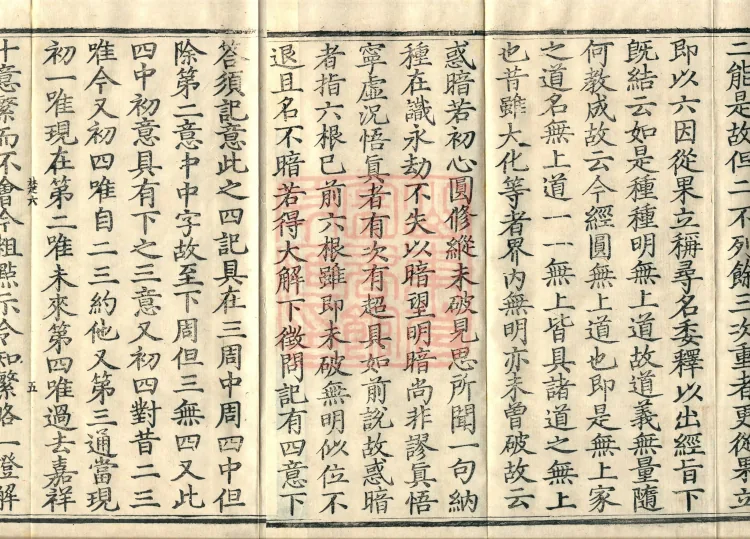 二能是故但二不列餘三次重者更從果立
即以六因從果立稱尋名委釋以出經旨下
旣結云如是種種明無上道故道義無量隨
何教成故云今經圓無上道也即是無上家
之道名無上道一一無上皆具諸道之無上
也昔雖大化等者界內無明亦未曾破故云
惑暗若初心圓修縱未破見思所聞一句納
種在識永劫不失以暗望明暗尚非謬眞悟
寧虛況悟眞者有次有超具如前說故惑暗
者指六根已前六根雖即未破無明似位不
退且名不暗若得大解下徵問記有四意下
荅須記意此之四記具在三周中周四中但
除第二意中中字故至下周但三無四又此
四中初意具有下之三意又初四對昔二三
唯今又初四唯自二三約他又第三通當現
初一唯現在第二唯未來第四唯過去嘉祥
楚六 五
十意繁而不會今粗點示令知繁略一證解